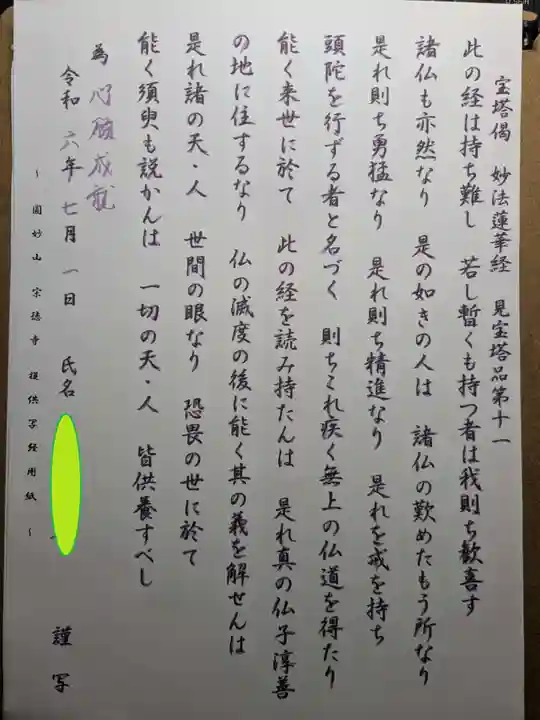 宝塔偈　妙法蓮華経　見宝塔品第十一
此の経は持ち難し　若し暫くも持つ者は我則ち歓喜す
諸仏も亦然なり　是の如きの人は　諸仏の歎めたもう所なり
是れ則ち勇猛なり　是れ則ち精進なり　是れを戒を持ち
頭陀を行ずる者と名づく　則ちこれ疾く無上の仏道を得たり
能く来世に於て　此の経を読み持たんは　是れ真の仏子淳善
の地に住するなり　仏の滅度の後に能く其の義を解せんは
是れ諸の天・人　世間の眼なり　恐畏の世に於て
能く須臾も説かんは　一切の天・人　皆供養すべし
為　心願成就
令和　六年　七月　一日　氏名　謹　写
～　圓妙山　宗徳寺　提供写経用紙　～